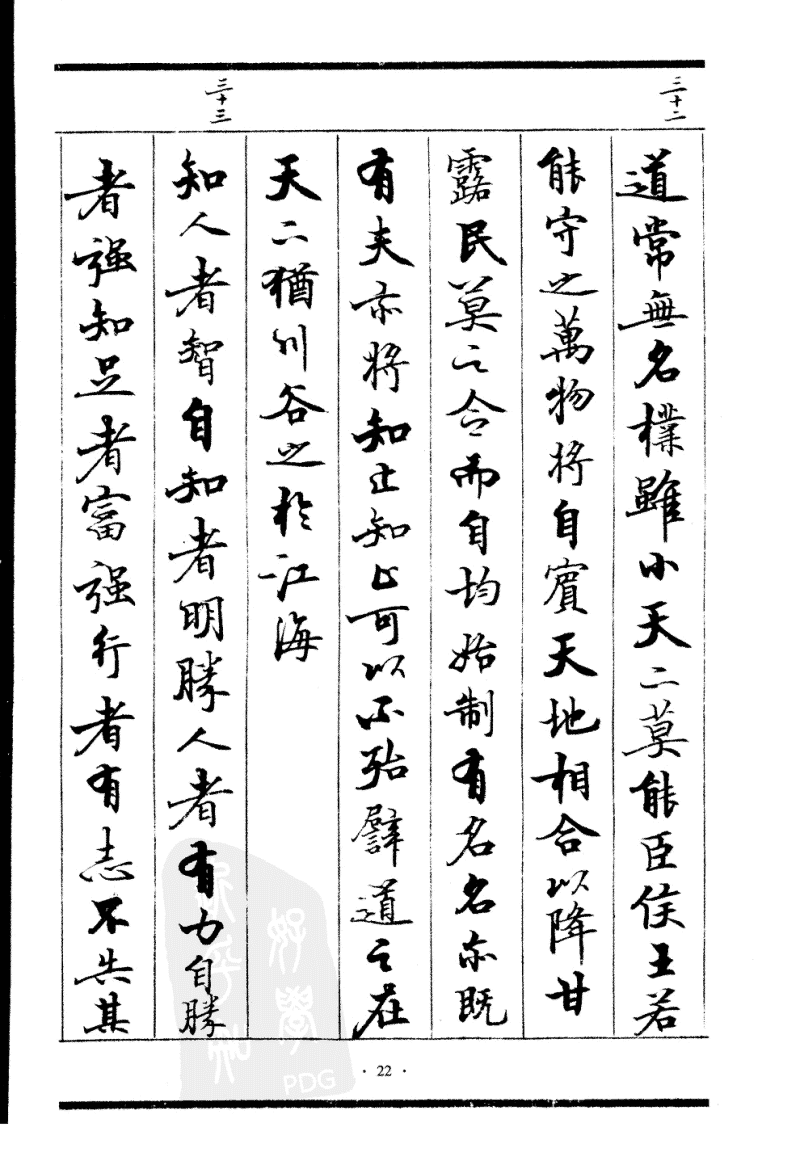 三十二
道常無名樸雖小天下莫能臣侯王若
能守之萬物將自賓天地相合以降甘
露民莫之令而自均始制有名名亦既
有夫亦將知止知止可以不殆譬道之在
天下猶川谷之於江海
三十三
知人者智自知者明勝人者有力自勝
者强知足者富强行者有志不失其
· 22 ·
好學
PDG